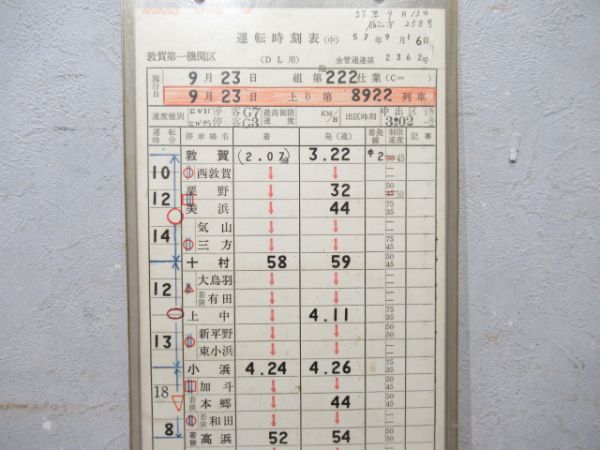 57年9月13日
運転時刻表(中) 57年9月16日
敦賀第一機関区 (DL用) 金管通達第2362号
施行日 9月23日 組 第222仕業(C= )
9月23日 上り第 8922 列車
速度種別 停 客G7 停 客G3 最高制限速度 KM/H 出区時刻 中出区 3:02
運転時分 停車場名 着 発(通) 着発線 制限速度 記事
敦賀 (2.07) 3.22 中2 50 45
10 西敦賀 ↓ ↓
粟野 ↓ 32 50 45 50
12 美浜 ↓ 44 75 35
気山 ↓ ↓
14 三方 ↓ ↓ 50 45
十村 58 59 75 45
大鳥羽 ↓ ↓
12 若狭有田 ↓ ↓
上中 ↓ 4.11 75 35
新平野 ↓ ↓ 50 50
13 東小浜 ↓ ↓
小浜 4.24 4.26 75 35
加斗 ↓ ↓ 50 45
18 若狭本郷 ↓ 44 75 45
若狭和田 ↓ ↓
8 若狭高浜 52 54